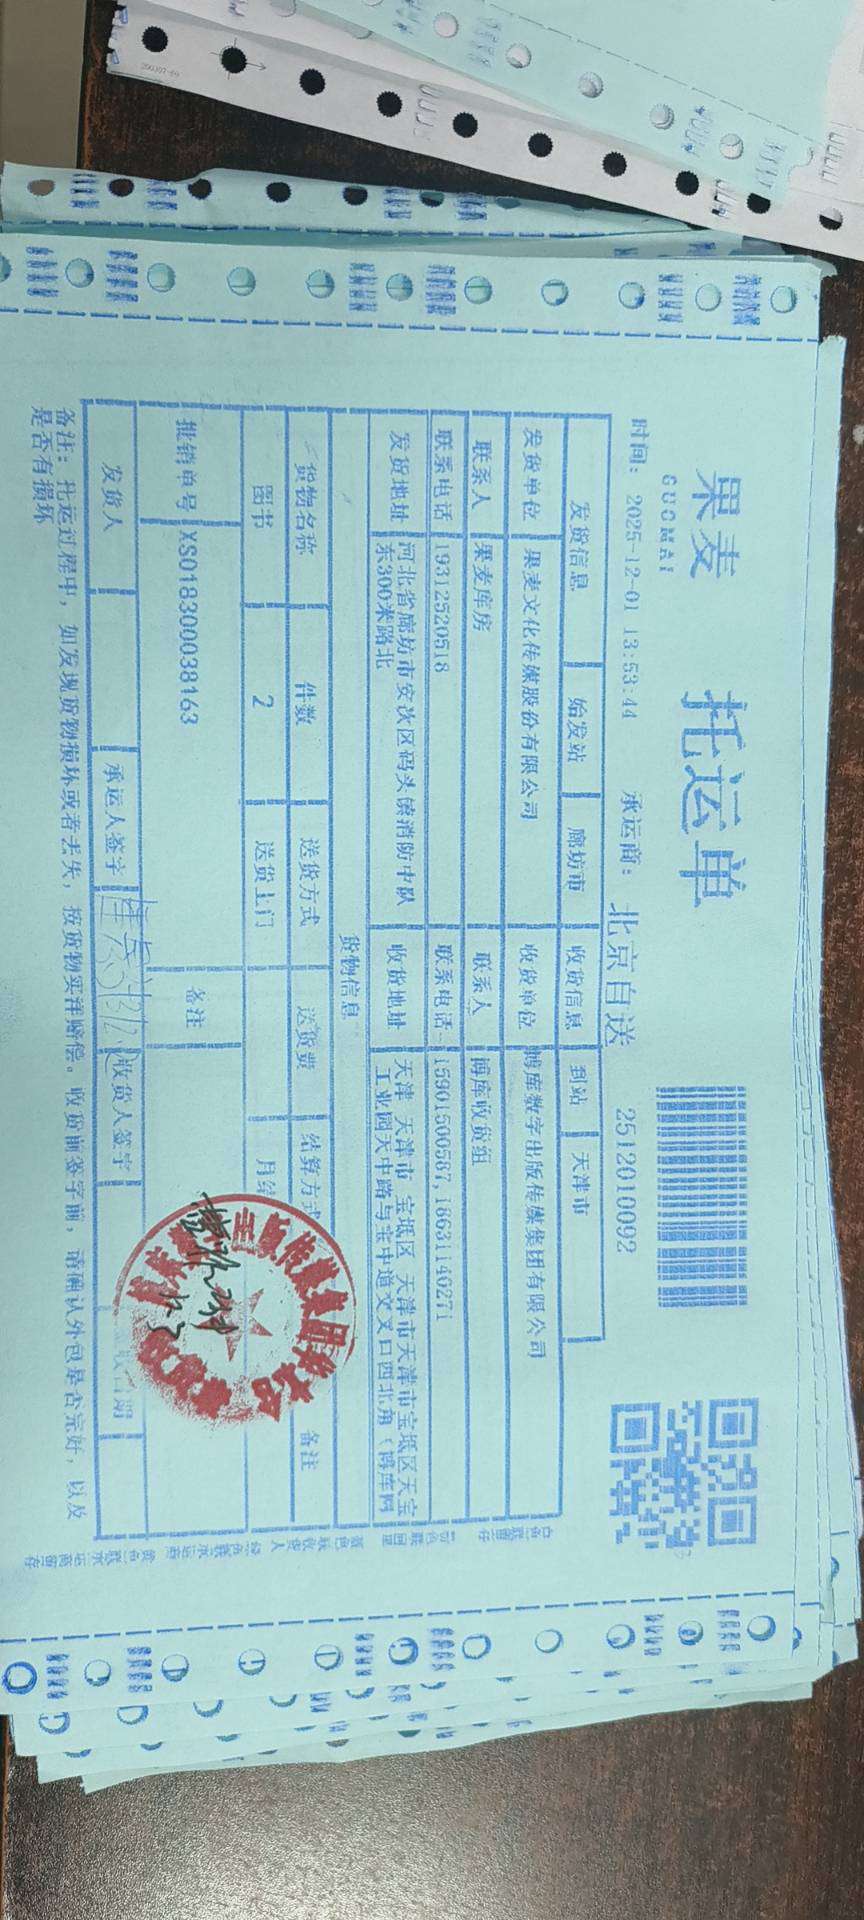 果麦
GUOMAI
托运单
时间: 2025-12-01 13:53:44 承运商: 北京自送 2512010092
发货信息 始发站 廊坊市 收货信息 到站 天津市
发货单位 果麦文化传媒股份有限公司 收货单位 博库数字出版传媒集团有限公司
联系人 果麦库房 联系人 博库收货组
联系电话 19312520518 联系电话 15901500587,18631140271
发货地址 河北省廊坊市安次区码头镇消防中队东300米路北 收货地址 天津 天津市 宝坻区 天津市天津市宝坻区天宝工业园天中路与宝中道交叉口西北角（博库网
货物信息
货物名称 件数 送货方式 送货费 结算方式 备注
图书 2 送货上门 月结
批销单号 XS018300038163 备注
发货人 承运人签字 收货人签字
备注: 托运过程中, 如发现货物损坏或者丢失, 按货物实洋赔偿。收货前签字前, 请确认外包是否完好, 以及
是否有损坏